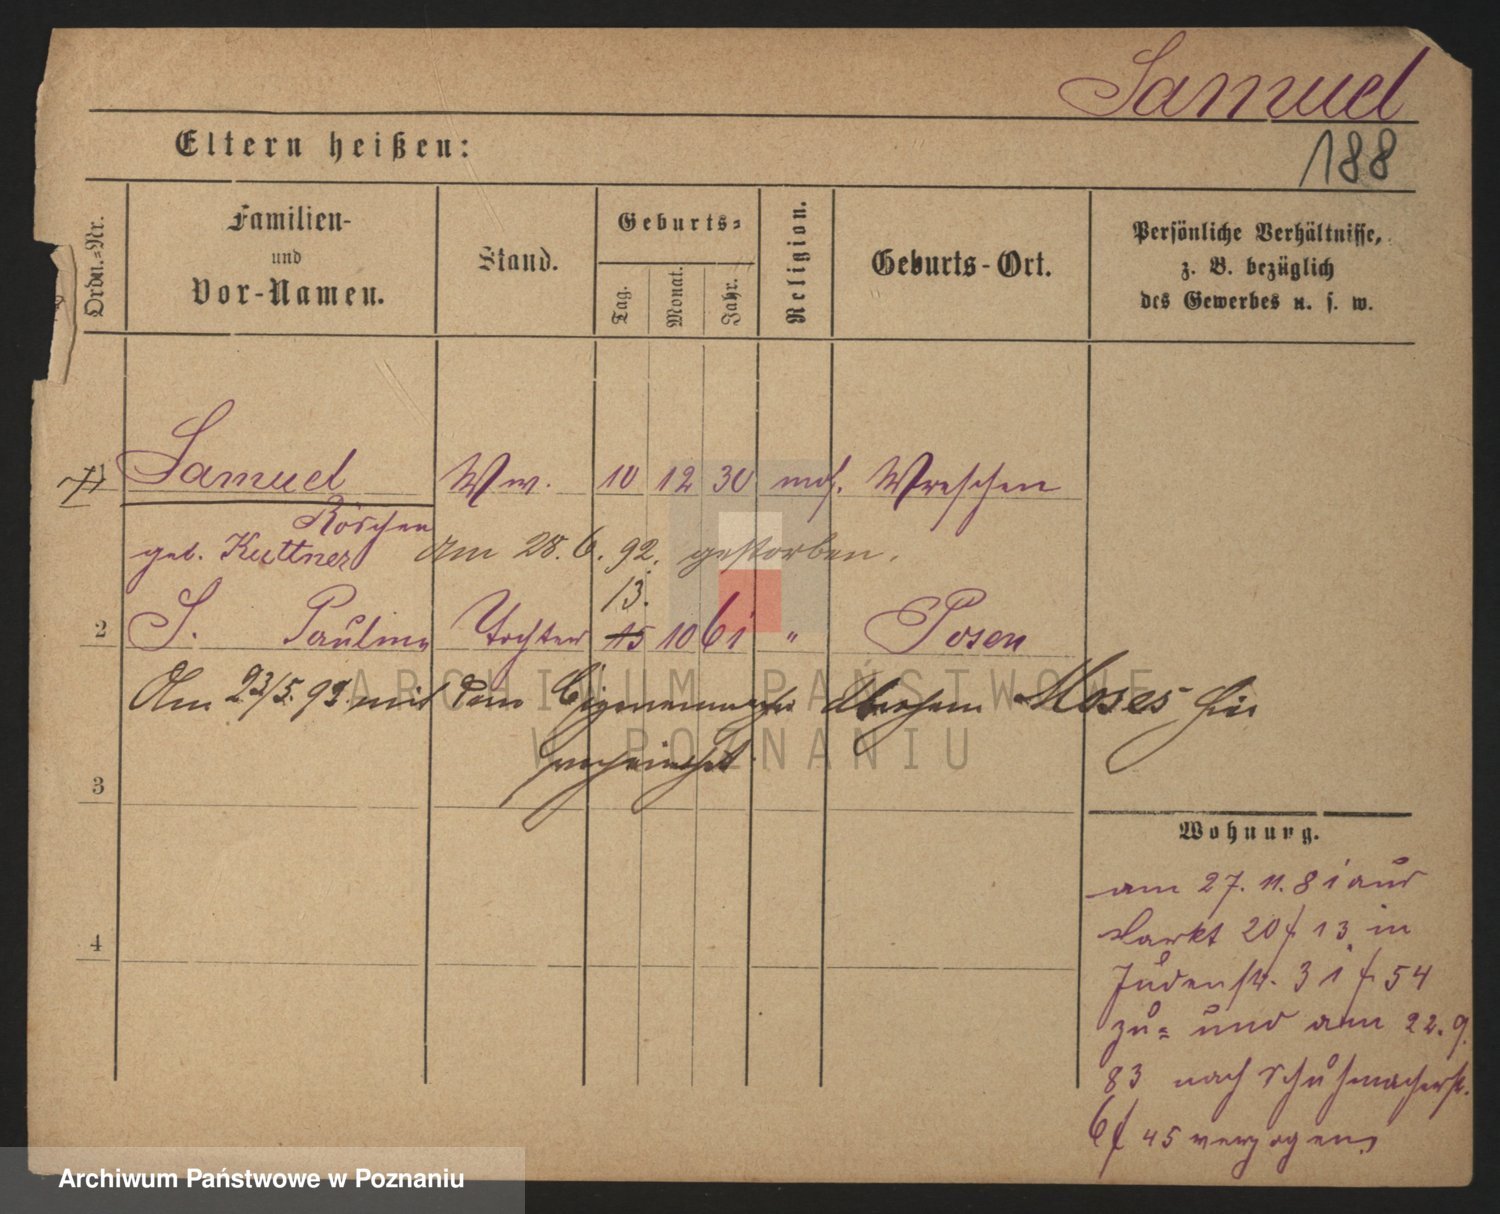 Samuel
188
Eltern heißen:
Ordn.=Nr.
Familien-
und
Vor-Namen.
Stand.
Geburts=
Tag.
Monat.
Jahr.
Religion.
Geburts-Ort.
Persönliche Verhältnisse,
z. B. bezüglich
des Gewerbes u. s. w.
1 Samuel Ww. 10 12 30 mos. Wreschen
Röschen
geb. Kuttner am 28. 6. 92. gestorben.
13.
2 S. Pauline Tochter 15 10 61 " Posen
Am 23/5. 93. mit dem Eigenthümer Abraham Moses hier
verheirathet.
3
4
Wohnung.
am 27. 11. 81 aus
Markt 20/13 in
Judenstr. 31/54
zu= und am 22. 9.
83 nach Schuhmacherstr.
6/45 verzogen.
ARCHIWUM PAŃSTWOWE
W POZNANIU
Archiwum Państwowe w Poznaniu